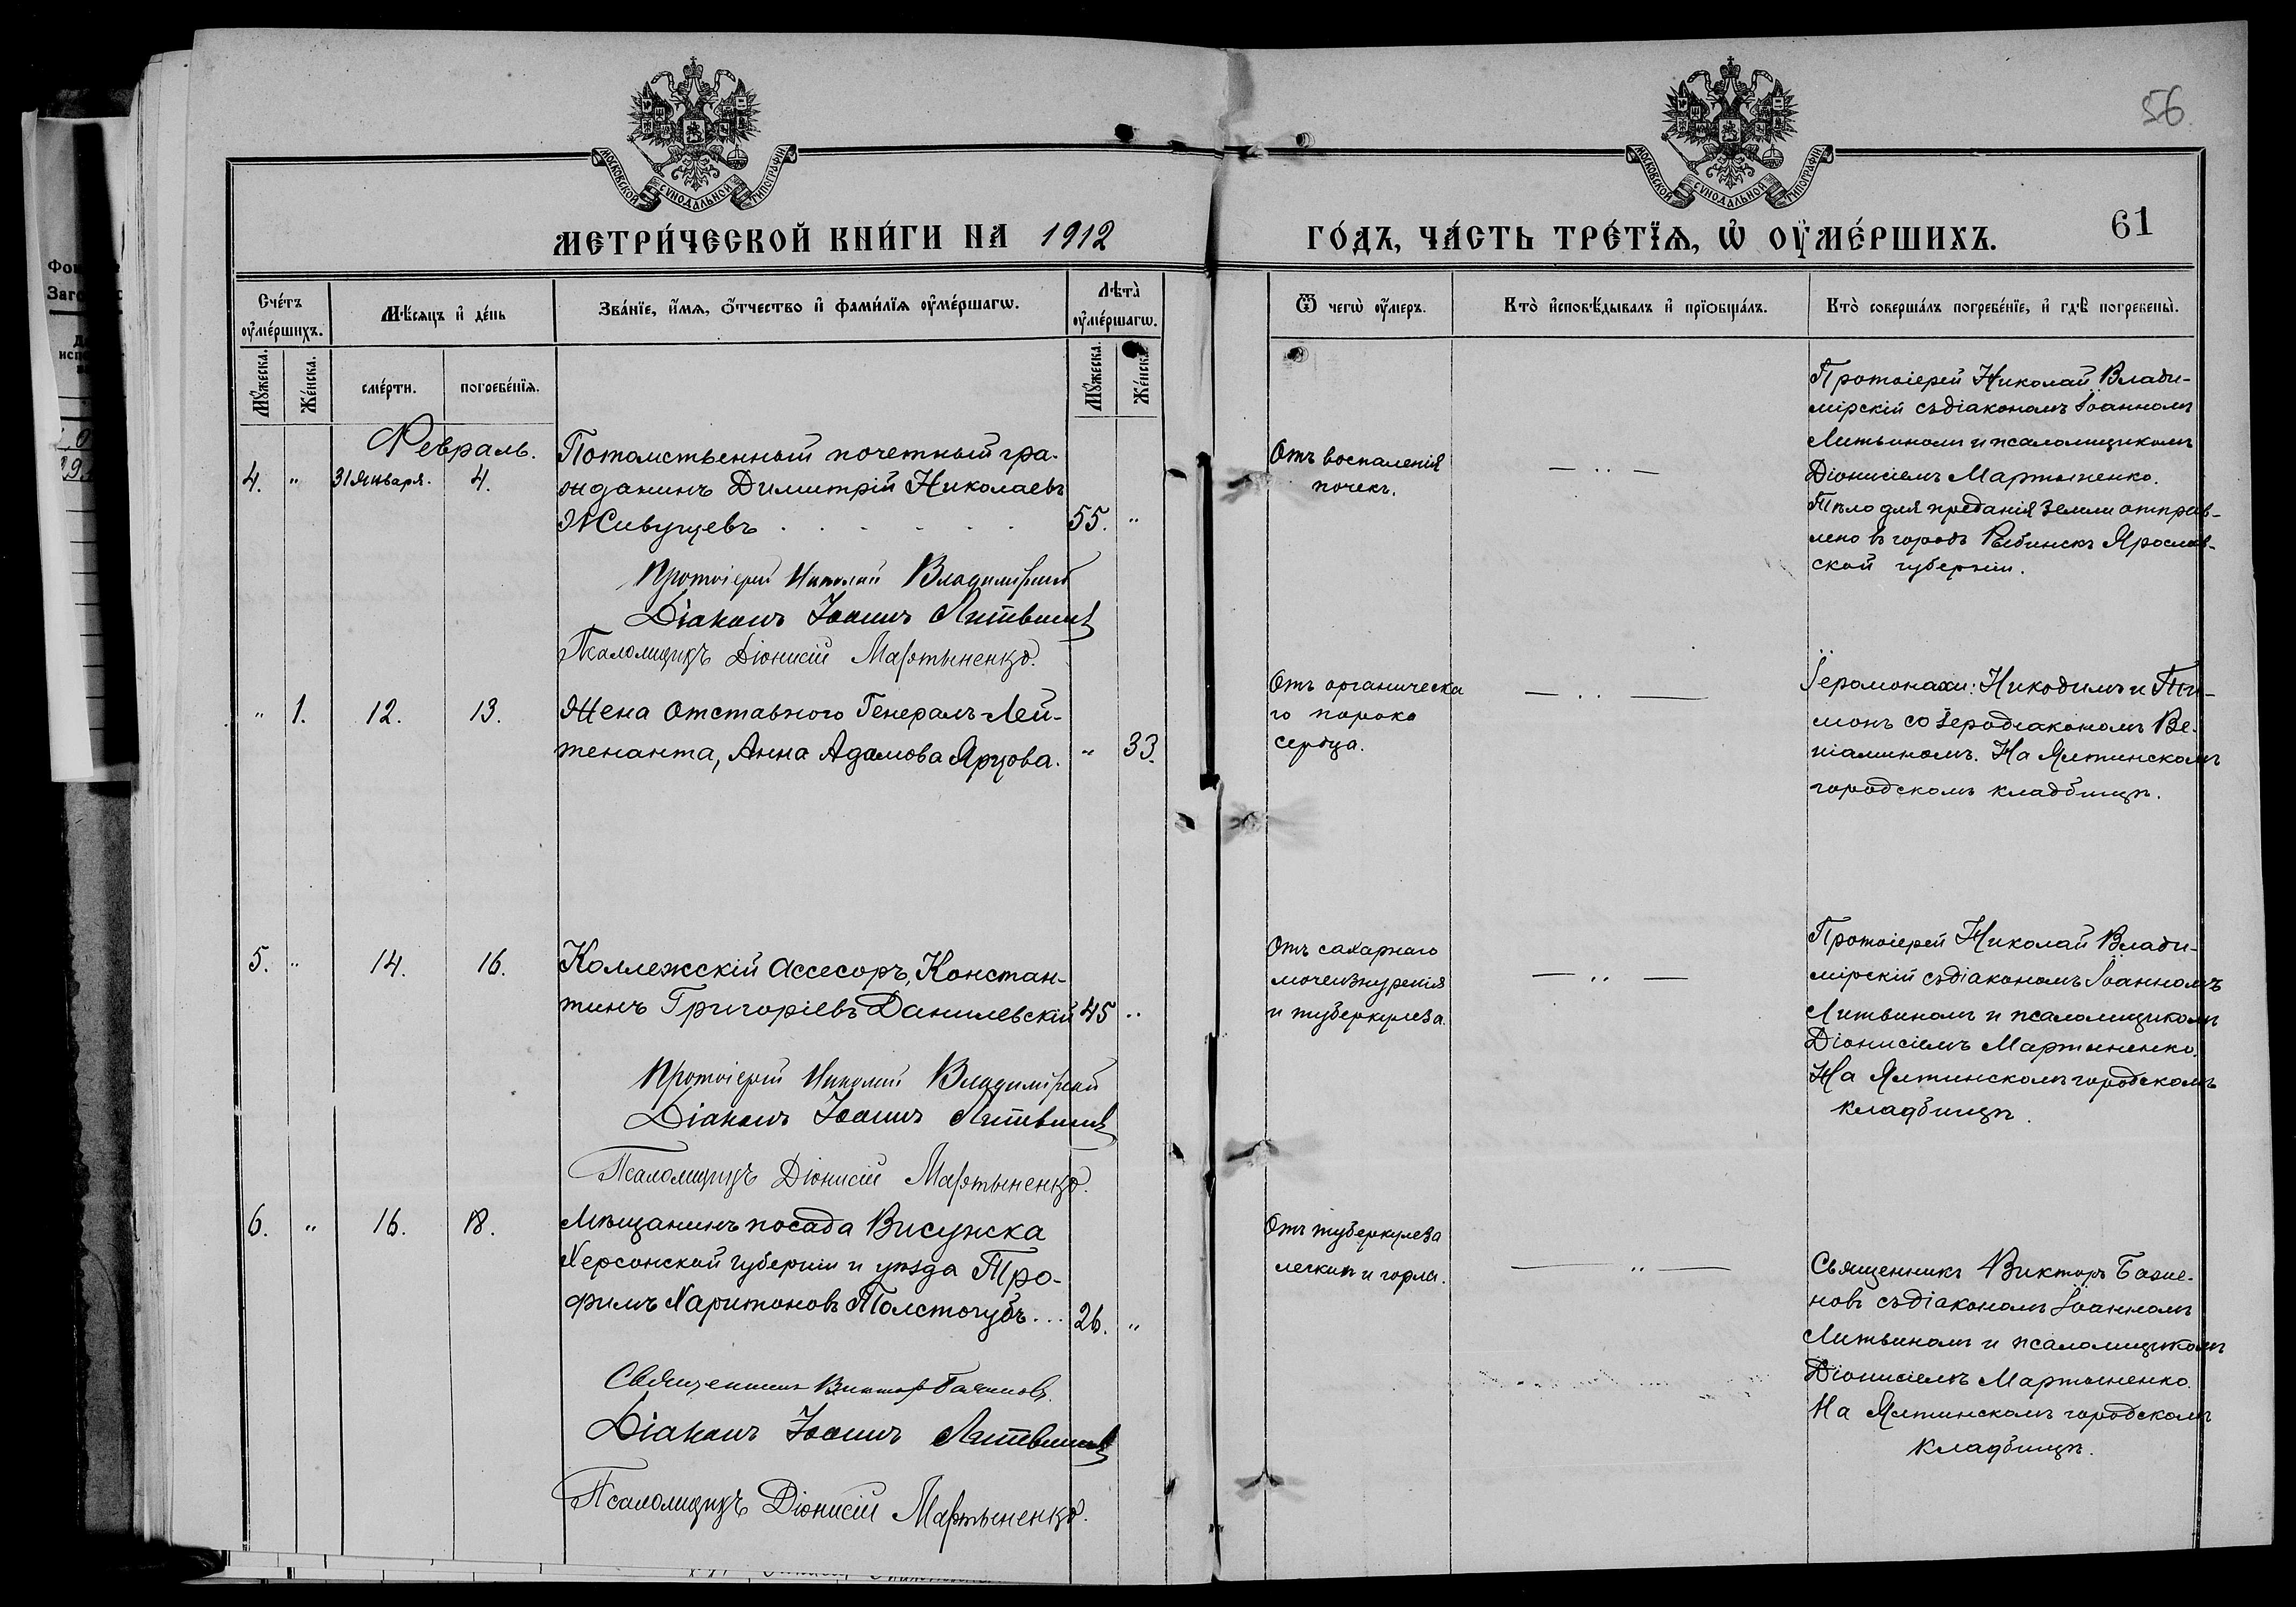 56
МОСКОВСКОЙ СѴНОДАЛЬНОЙ ТИПОГРАФІИ
МОСКОВСКОЙ СѴНОДАЛЬНОЙ ТИПОГРАФІИ
МЕТРИ́ЧЕСКОЙ КНИ́ГИ НА 1912
ГО́ДЪ, ЧА́СТЬ ТРЕ́ТЇѦ, Ѡ҆ ОУ҆МЕ́РШИХЪ.
61
Сче́тъ оу҆ме́ршихъ.
Мѣ́сяцъ и҆ де́нь
Зва́нїе, и҆́мѧ, ѻ҆́тчество и҆ фами́лїѧ оу҆ме́ршагѡ.
Лѣ́та̀ оу҆ме́ршагѡ.
Ѿ чегѡ̀ оу҆́меръ.
Кто̀ и҆сповѣ́дывалъ и҆ прїѡбща́лъ.
Кто̀ соверша́лъ погребе́нїе, и҆ гдѣ̀ погребены̀.
Мꙋ́жеска.
Же́нска.
сме́рти.
погребе́нїѧ.
Мꙋ́жеска.
Же́нска.
Февраль.
4. " 31 Января. 4.
Потомственный почетный гра-
жданинъ Димитрій Николаевъ
Живущевъ . . . . . . 55. "
Протоіерей Николай Владимірскій
Діаконъ Іоаннъ Литвинъ
Псаломщикъ Діонисій Мартыненко.
Отъ воспаленія
почекъ.
— .. —
Протоіерей Николай Влади-
мірскій съ діакономъ Іоанномъ
Литвиномъ и псаломщикомъ
Діонисіемъ Мартыненко.
Тѣло для преданія земли отправ-
лено въ городъ Рыбинскъ Ярослав-
ской губерніи.
" 1. 12. 13.
Жена Отставного Генералъ-Лей-
тенанта, Анна Адамова Ярцова. " 33.
Отъ органическа
го порока
сердца.
— .. —
Іеромонахи: Никодимъ и Пи-
монъ со Іеродіакономъ Ве-
ніаминомъ. На Ялтинскомъ
городскомъ кладбищѣ.
5. " 14. 16.
Коллежскій Ассесоръ, Констан-
тинъ Григоріевъ Данилевскій 45 "
Протоіерей Николай Владимірскій
Діаконъ Іоаннъ Литвинъ
Псаломщикъ Діонисій Мартыненко.
Отъ сахарнаго
мочеизнуренія
и туберкулеза.
— .. —
Протоіерей Николай Влади-
мірскій съ діакономъ Іоанномъ
Литвиномъ и псаломщикомъ
Діонисіемъ Мартыненко.
На Ялтинскомъ городскомъ
кладбищѣ.
6. " 16. 18.
Мѣщанинъ посада Висунска
Херсонской губерніи и уѣзда Тро-
фимъ Харитоновъ Толстогубъ... 26. "
Священникъ Викторъ
Діаконъ Іоаннъ Литвинъ
Псаломщикъ Діонисій Мартыненко.
Отъ туберкулеза
легкихъ и горла.
— .. —
Священникъ Викторъ
новъ съ діакономъ Іоанномъ
Литвиномъ и псаломщикомъ
Діонисіемъ Мартыненко.
На Ялтинскомъ городскомъ
кладбищѣ.